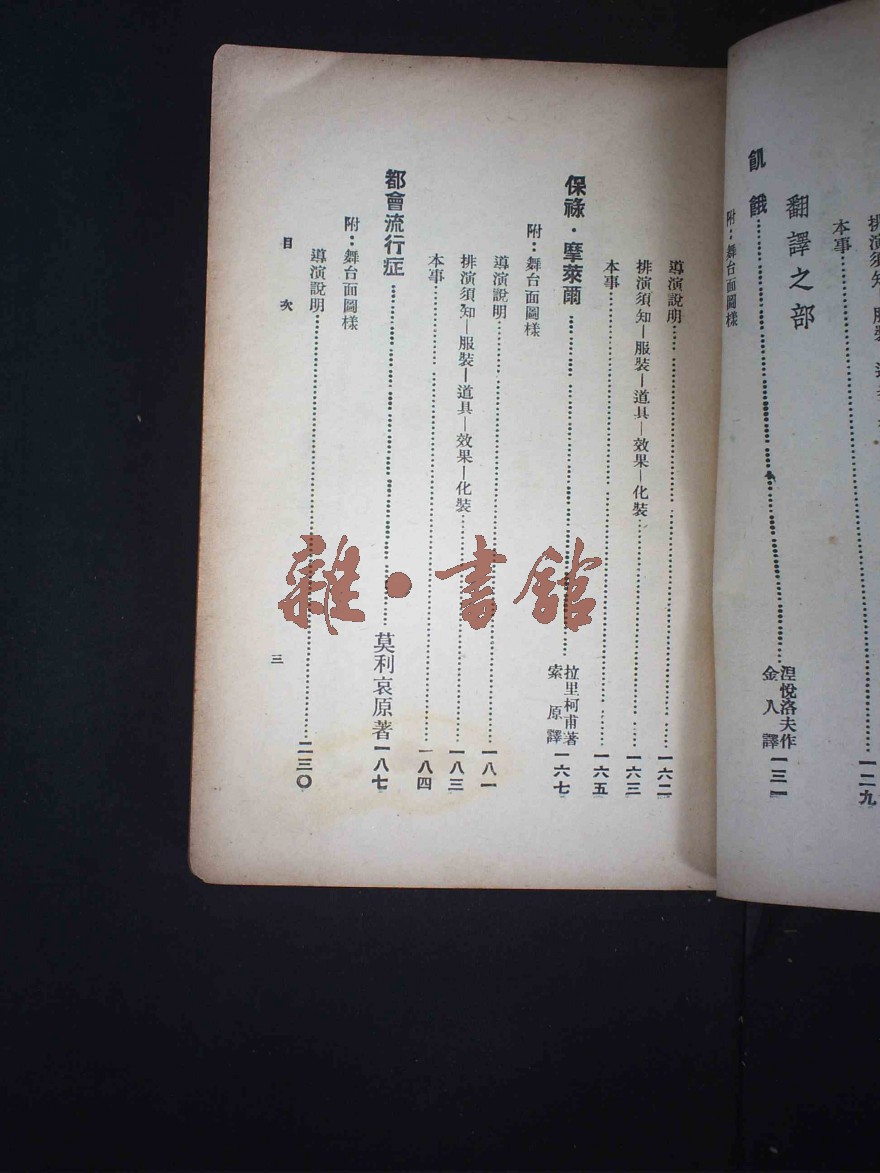 本事……一二九
翻譯之部
飢餓……涅悅洛夫作 金人譯 一三一
附：舞台面圖樣
導演說明……一六二
排演須知—服裝—道具—效果—化裝……一六三
本事……一六五
保祿·摩萊爾……拉里柯甫著 索原譯 一六七
附：舞台面圖樣
導演說明……一八一
排演須知—服裝—道具—效果—化裝……一八三
本事……一八四
都會流行症……莫利哀原著 一八七
附：舞台面圖樣
導演說明……二三〇
目次
三
雜·書館